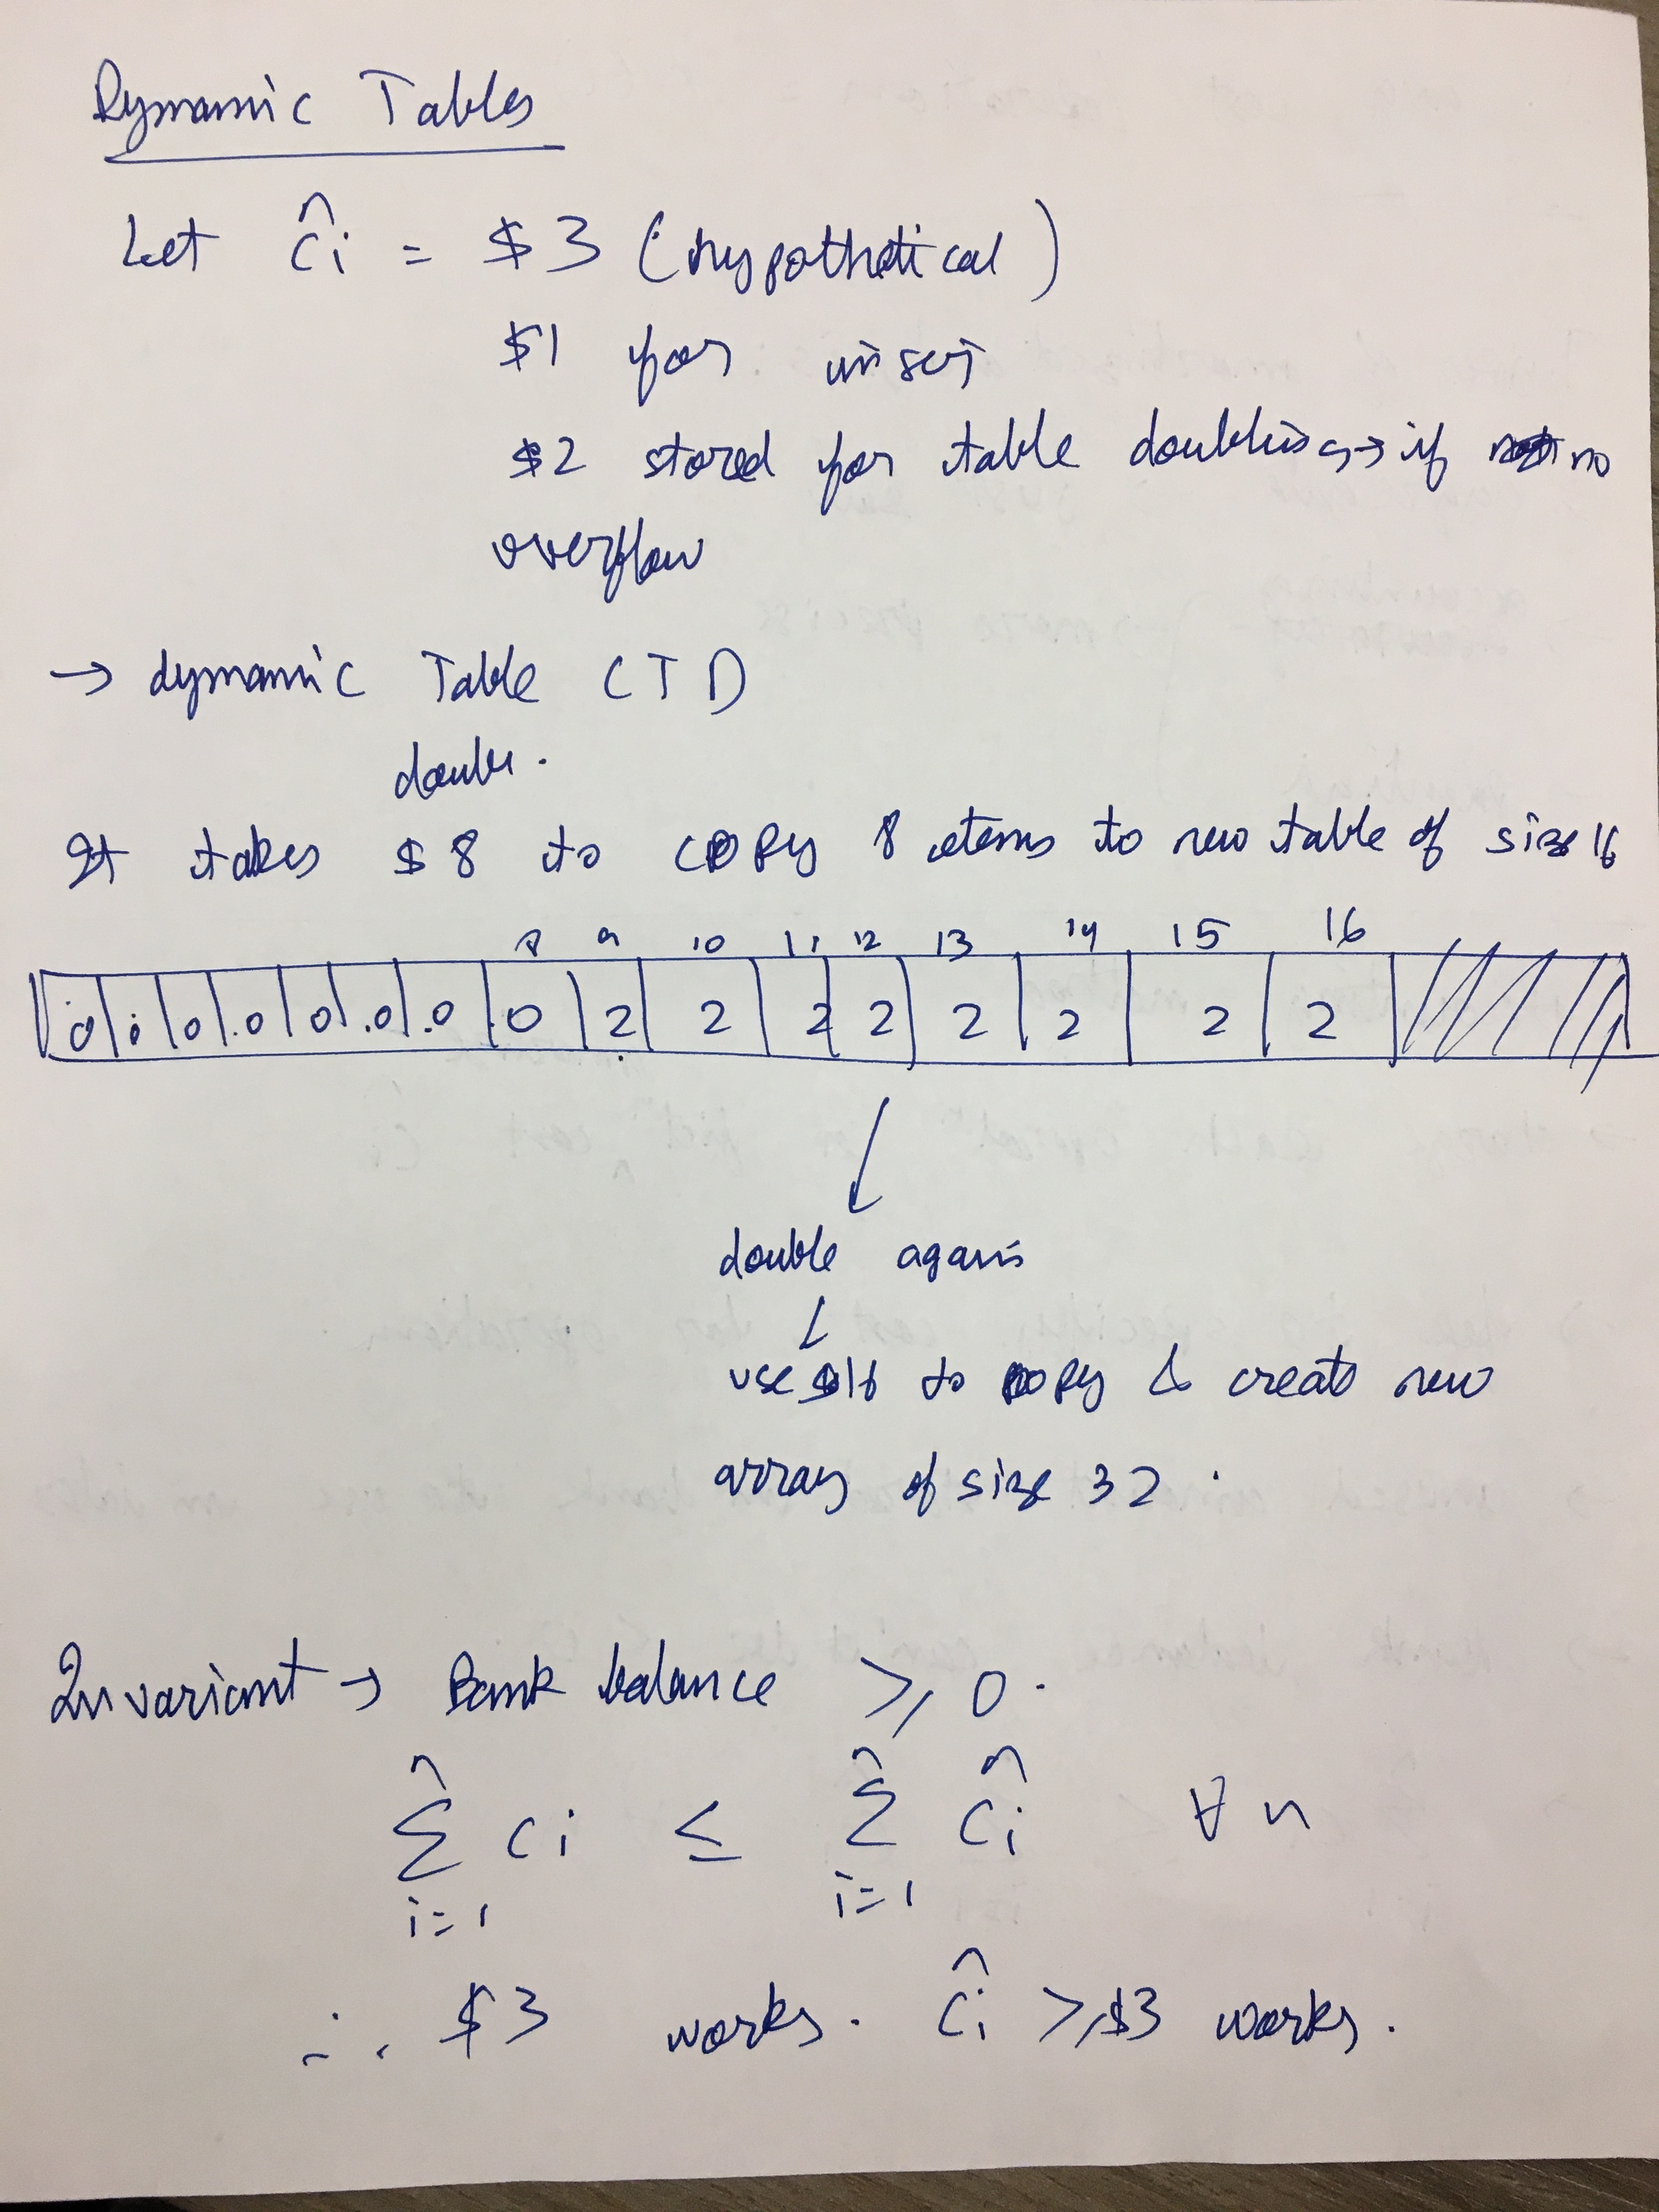 Dynamic Tables
Let ĉi = $3 (hypothetical)
$1 for insert
$2 stored for table doubling → if no
overflow
→ dynamic Table (TD)
double.
It takes $8 to copy 8 items to new table of size 16
8 9 10 11 12 13 14 15 16
0 0 0 0 0 0 0 0 2 2 2 2 2 2 2 2
double again
use $16 to copy & create new
array of size 32.
Invariant → Bank balance ≥ 0.
n n
Σ ci ≤ Σ ĉi ∀ n
i=1 i=1
∴ $3 works. ĉi ≥ $3 works.